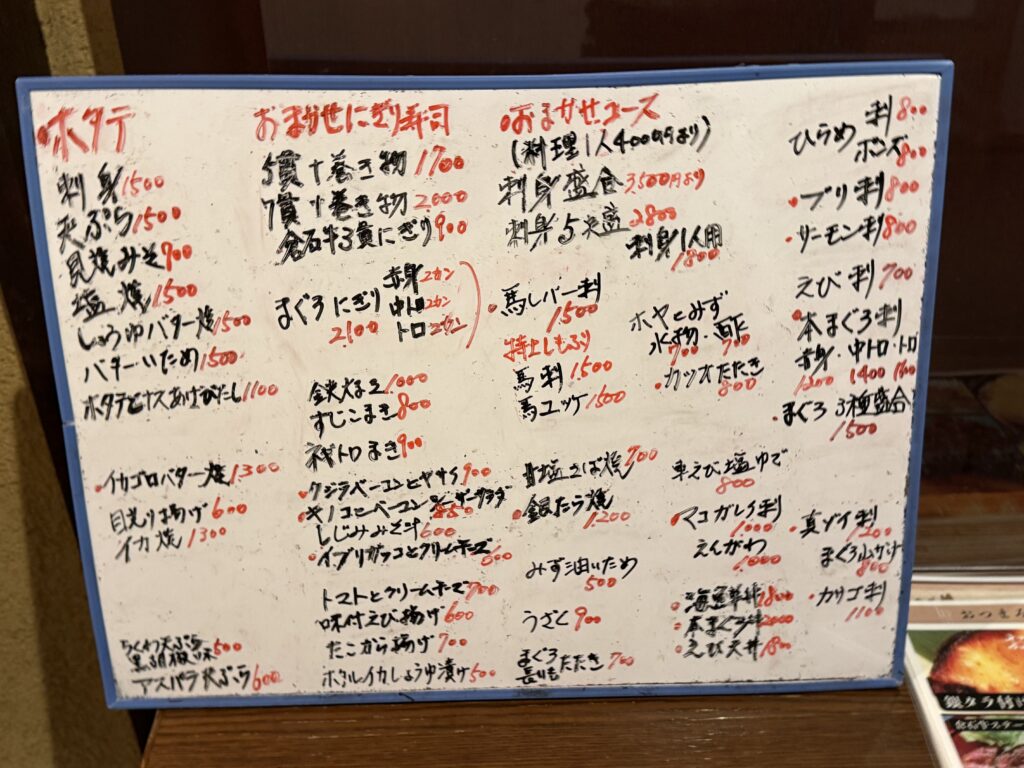 ホタテ
刺身 1500
天ぷら 1500
貝焼みそ 900
塩焼 1500
しょうゆバター焼 1500
バターいため 1500
ホタテとナスあげびたし 1100
・イカゴロバター焼 1300
目光り揚げ 600
イカ焼 1300
ちくわ天ぷら
黒胡椒味 500
アスパラ天ぷら 600
おまかせにぎり寿司
5貫+巻き物 1700
7貫+巻き物 2000
倉石牛3貫にぎり 900
まぐろにぎり 2100
赤身2カン
中トロ2カン
トロ2カン
鉄火まき 1000
すじこまき 800
ネギトロまき 900
・クジラベーコンとヤサイ 900
・キノコとベーコン
しじみみそ汁 600
・イブリガッコとクリームチーズ 600
トマトとクリームチーズ 700
味付えび揚げ 600
たこから揚げ 700
ホタルイカしょうゆ漬け 500
おまかせコース
(料理1人4000円より)
刺身盛合 3,500円より
刺身5点盛 2800
刺身1人用 1800
・馬レバー刺 1500
特上しもふり
馬刺 1500
馬ユッケ 1500
ホヤとみず
水物・酢
700 700
・カツオたたき 800
塩さば焼 700
・銀たら焼 1200
みず油いため 500
うざく 900
まぐろ
長いも
たたき 700
車えび塩ゆで 800
・マコガレイ刺 1000
えんがわ 1000
・海鮮丼 1800
・本まぐろ丼 2000
・えび天丼 1800
ひらめ
刺 800
ポンズ 800
・ブリ刺 800
・サーモン刺 800
えび刺 700
・本まぐろ刺
赤身・中トロ・トロ
1200 1400
・まぐろ3種盛合 1500
・真ゾイ刺 1200
まぐろ山かけ 800
・カサゴ刺 1100
銀タラ